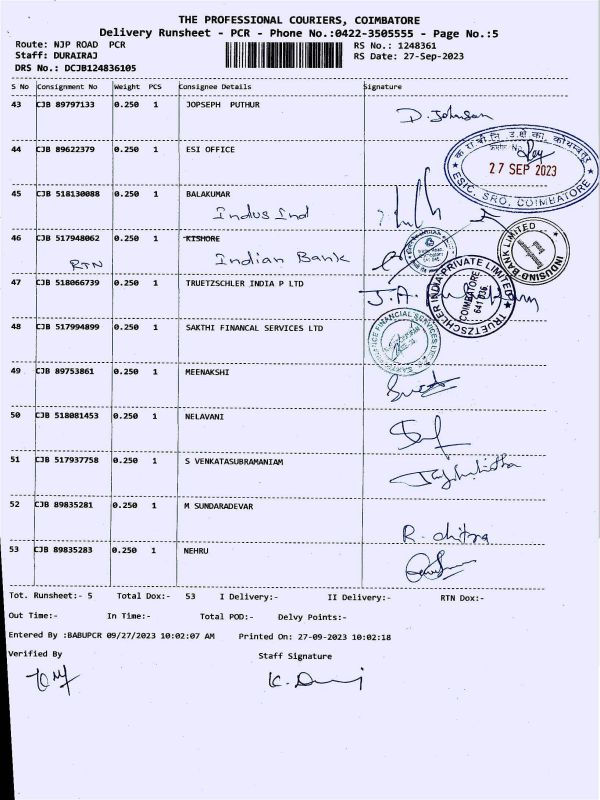 THE PROFESSIONAL COURIERS, COIMBATORE
Delivery Runsheet - PCR - Phone No.:0422-3505555 - Page No.:5
Route: NJP ROAD PCR
RS No.: 1248361
Staff: DURAIRAJ
RS Date: 27-Sep-2023
DRS No.: DCJB124836105
S No Consignment No Weight PCS Consignee Details Signature
43 CJB 89797133 0.250 1 JOPSEPH PUTHUR
D. Johnson
44 CJB 89622379 0.250 1 ESI OFFICE
27 SEP 2023
ESIC, SRO, COIMBATORE
45 CJB 518130088 0.250 1 BALAKUMAR
Indus Ind
46 CJB 517948062 0.250 1 KISHORE
RTN Indian Bank
INDUSIND BANK LIMITED
47 CJB 518066739 0.250 1 TRUETZSCHLER INDIA P LTD
TRUETZSCHLER INDIA PRIVATE LIMITED
COIMBATORE
641 036
48 CJB 517994899 0.250 1 SAKTHI FINANCAL SERVICES LTD
49 CJB 89753861 0.250 1 MEENAKSHI
50 CJB 518081453 0.250 1 NELAVANI
51 CJB 517937758 0.250 1 S VENKATASUBRAMANIAM
52 CJB 89835281 0.250 1 M SUNDARADEVAR
R. chitra
53 CJB 89835283 0.250 1 NEHRU
Tot. Runsheet:- 5 Total Dox:- 53 I Delivery:- II Delivery:- RTN Dox:-
Out Time:- In Time:- Total POD:- Delvy Points:-
Entered By :BABUPCR 09/27/2023 10:02:07 AM Printed On: 27-09-2023 10:02:18
Verified By Staff Signature